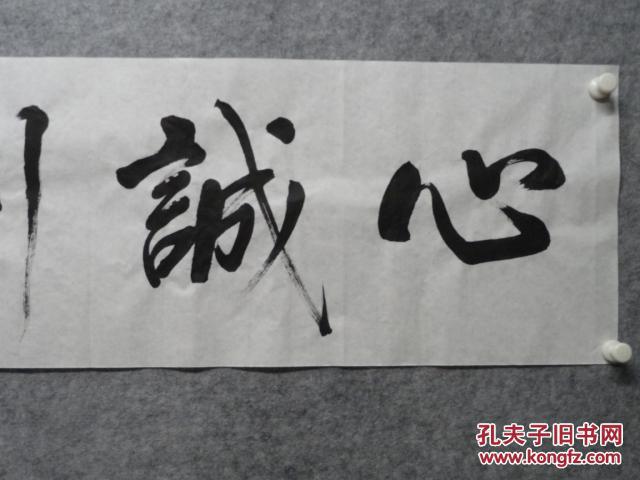 心誠
孔夫子旧书网
www.kongfz.com